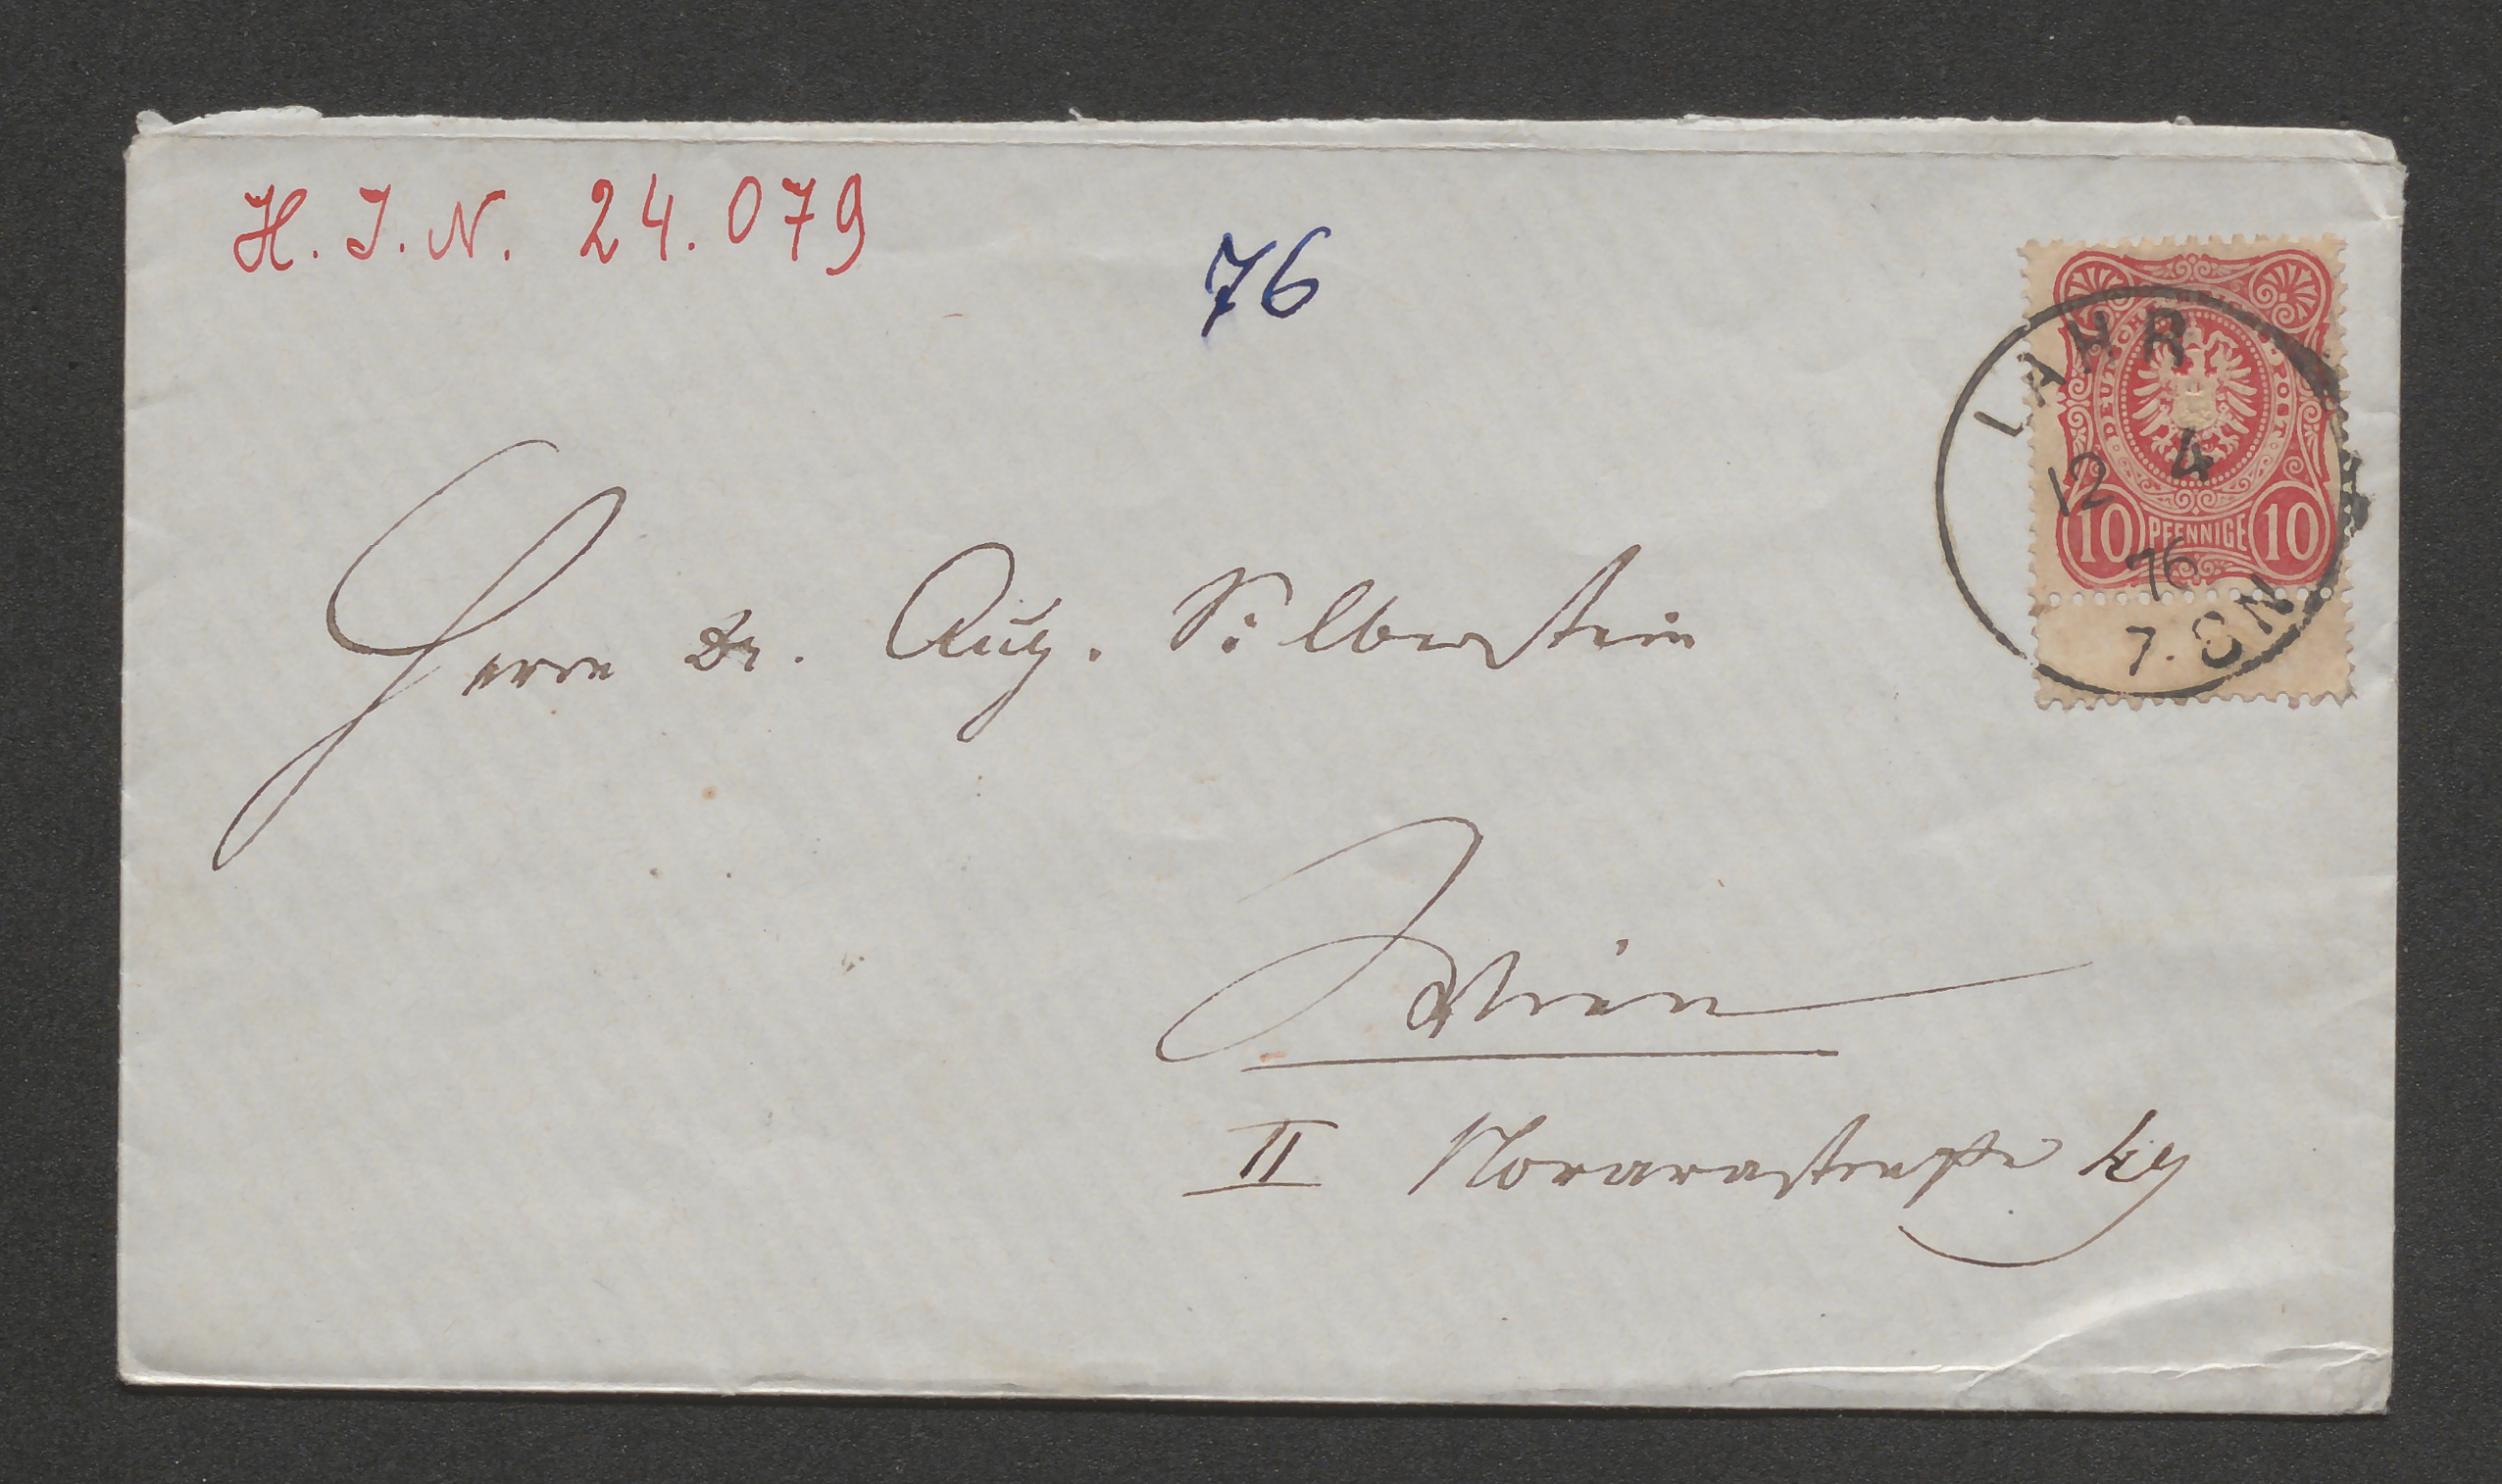 H. I. N. 24.079
76
DEUTSCHE REICHS-POST
10 PFENNIGE 10
LAHR
12 4
76
7. 8 N
Herrn Dr. Aug. Silberstein
Wien
II Novarastraße 49